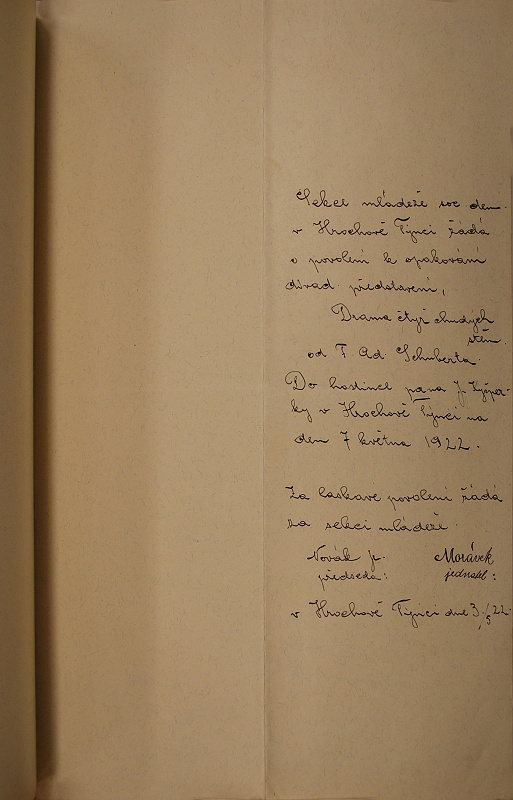 Sekce mládeže soc dem.
v Hrochově Týnci žádá
o povolení k opakování
divad představení,
Drama čtyř chudých
stěn.
od F. Ad. Schuberta.
Do hostince pana J. Kyšper-
ky v Hrochově Týnci na
den 7 května 1922.
Za laskavé povolení žádá
za sekci mládeže.
Novák Jr. Morávek
předseda: jednatel:
v Hrochově Týnci dne 3./5 22.